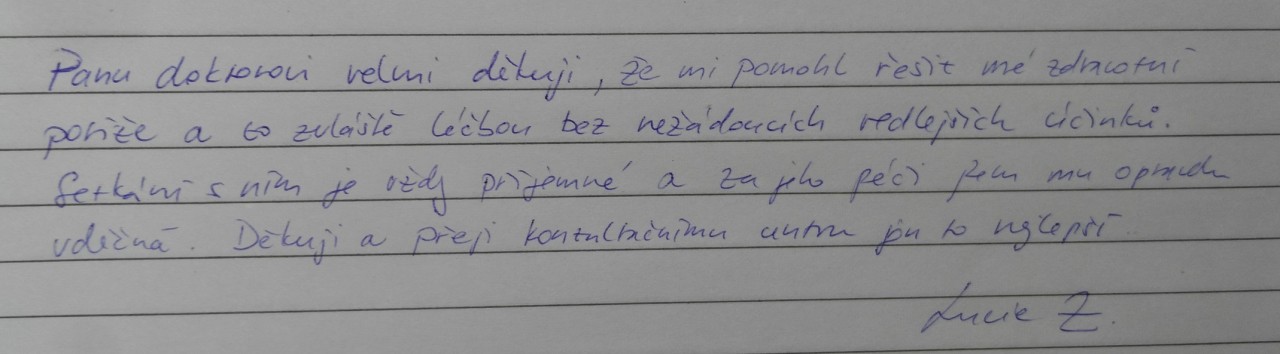 Panu doktorovi velmi děkuji, že mi pomohl řešit mé zdravotní
potíže a to zvláště léčbou bez nežádoucích vedlejších účinků.
Setkání s ním je vždy příjemné a za jeho péči jsem mu opravdu
vděčná. Děkuji a přeji konzultačnímu centru jen to nejlepší.
Lucie Z.